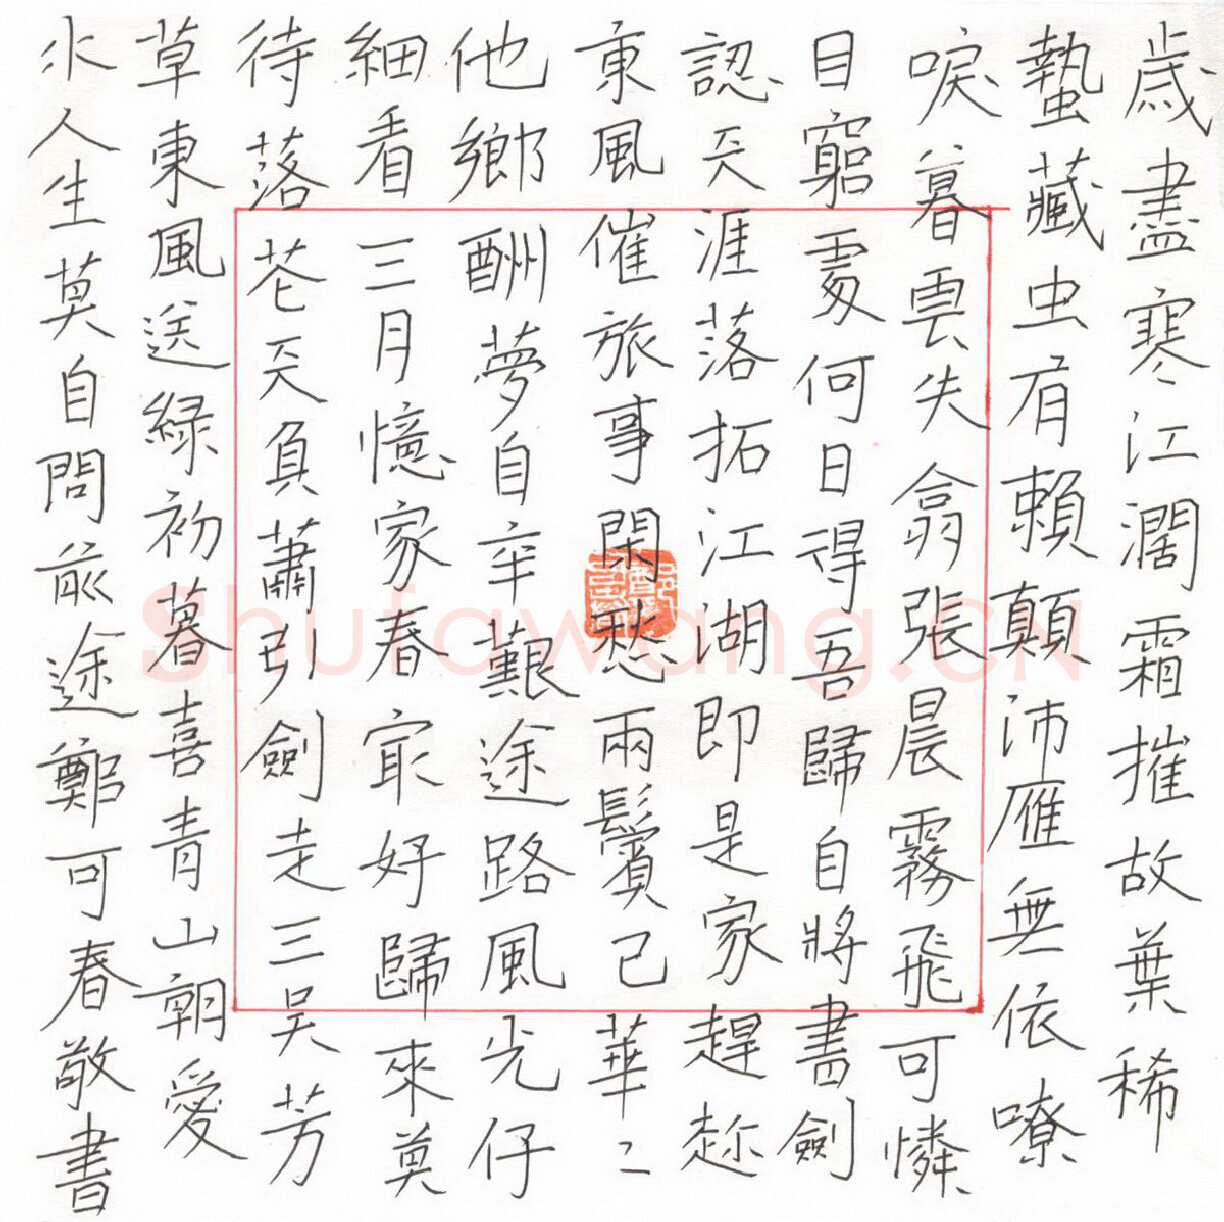 歲盡寒江濶霜摧故葉稀
蟄藏虫有賴顛沛雁無依嘹
唳暮雲失翕張晨霧飛可憐
目窮處何日得吾歸自將書劍
認天涯落拓江湖即是家趕趂
東風催旅事閑愁兩鬢已華〻
他鄉酬夢自辛艱途路風光仔
細看三月憶家春寂好歸來莫
待落花天負蕭引劍走三吴芳
草東風送緑初暮喜青山朝愛
水人生莫自問前途鄭可春敬書
Shufawang.CN